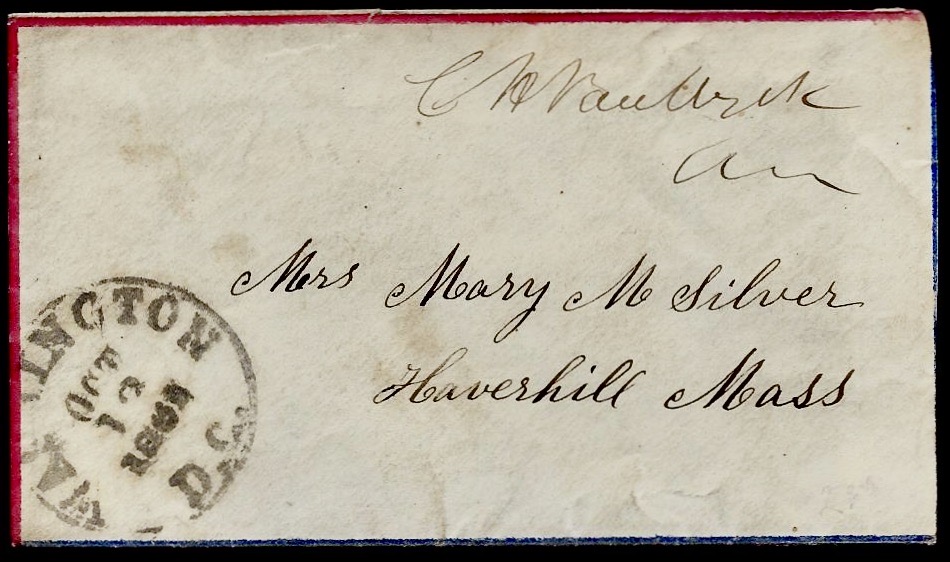 C H VanWyck
Mrs Mary M Silver
Haverhill Mass
WASHINGTON
D.C.
OCT